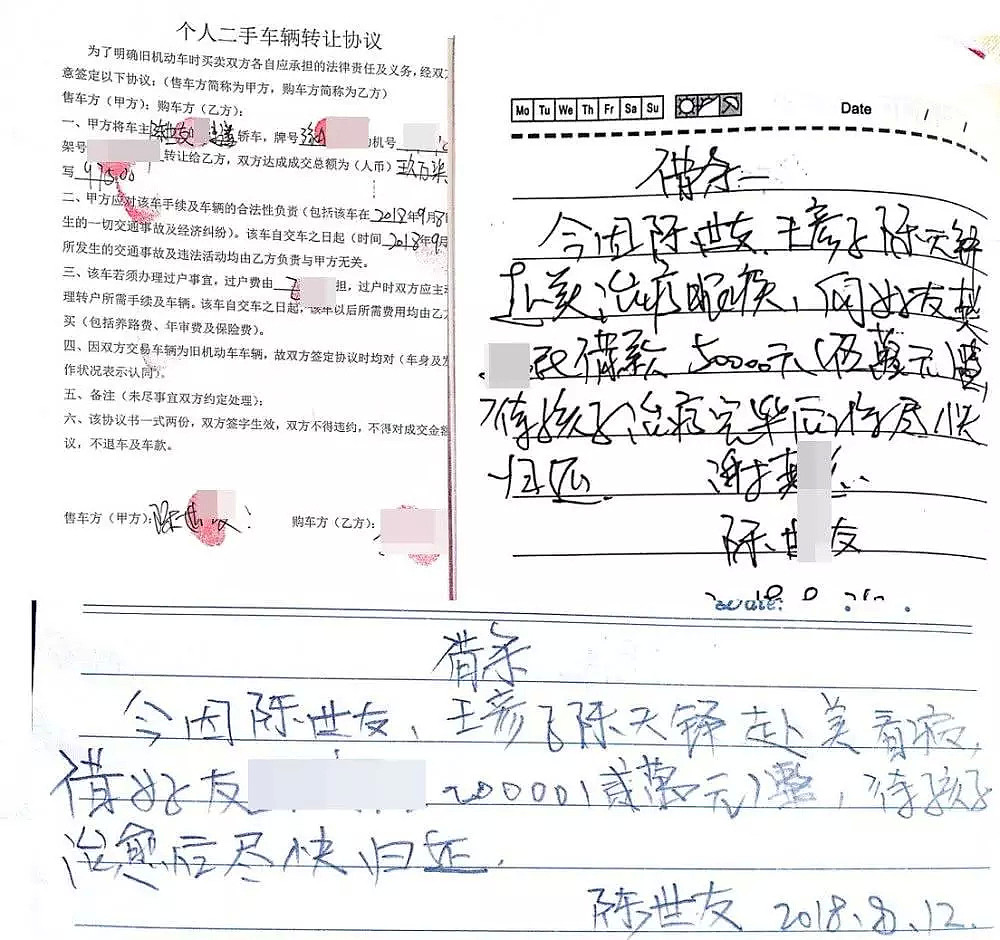 个人二手车辆转让协议
为了明确旧机动车时买卖双方各自应承担的法律责任及义务，经双方
意签定以下协议：（售车方简称为甲方，购车方简称为乙方）
售车方（甲方）：购车方（乙方）：
一、甲方将车主陈世友 轿车，牌号 机号
架号 转让给乙方，双方达成成交总额为（人币）
写
二、甲方应对该车手续及车辆的合法性负责（包括该车在2018年9月8日
生的一切交通事故及经济纠纷）。该车自交车之日起（时间2018年9月
所发生的交通事故及违法活动均由乙方负责与甲方无关。
三、该车若须办理过户事宜，过户费由 担，过户时双方应主动
理转户所需手续及车辆。该车自交车之日起，该车以后所需费用均由乙方
买（包括养路费、年审费及保险费）。
四、因双方交易车辆为旧机动车车辆，故双方签定协议时均对（车身及发
作状况表示认同）。
五、备注（未尽事宜双方约定处理）：
六、该协议书一式两份，双方签字生效，双方不得违约，不得对成交金额
议，不退车及车款。
售车方（甲方）：陈世友 购车方（乙方）：
Mo Tu We Th Fr Sa Su Date / /
借条
今因陈世友、王彦飞陈天铎
赴美治疗眼疾，向好友樊
借款50000元（伍萬元）整
待孩子治疗完毕后将尽快
归还 谢樊
陈世友
借条
今因陈世友、王彦飞陈天铎赴美看病，
借好友 20000（贰萬元）整，待孩子
治愈后尽快归还.
陈世友 2018.8.12.